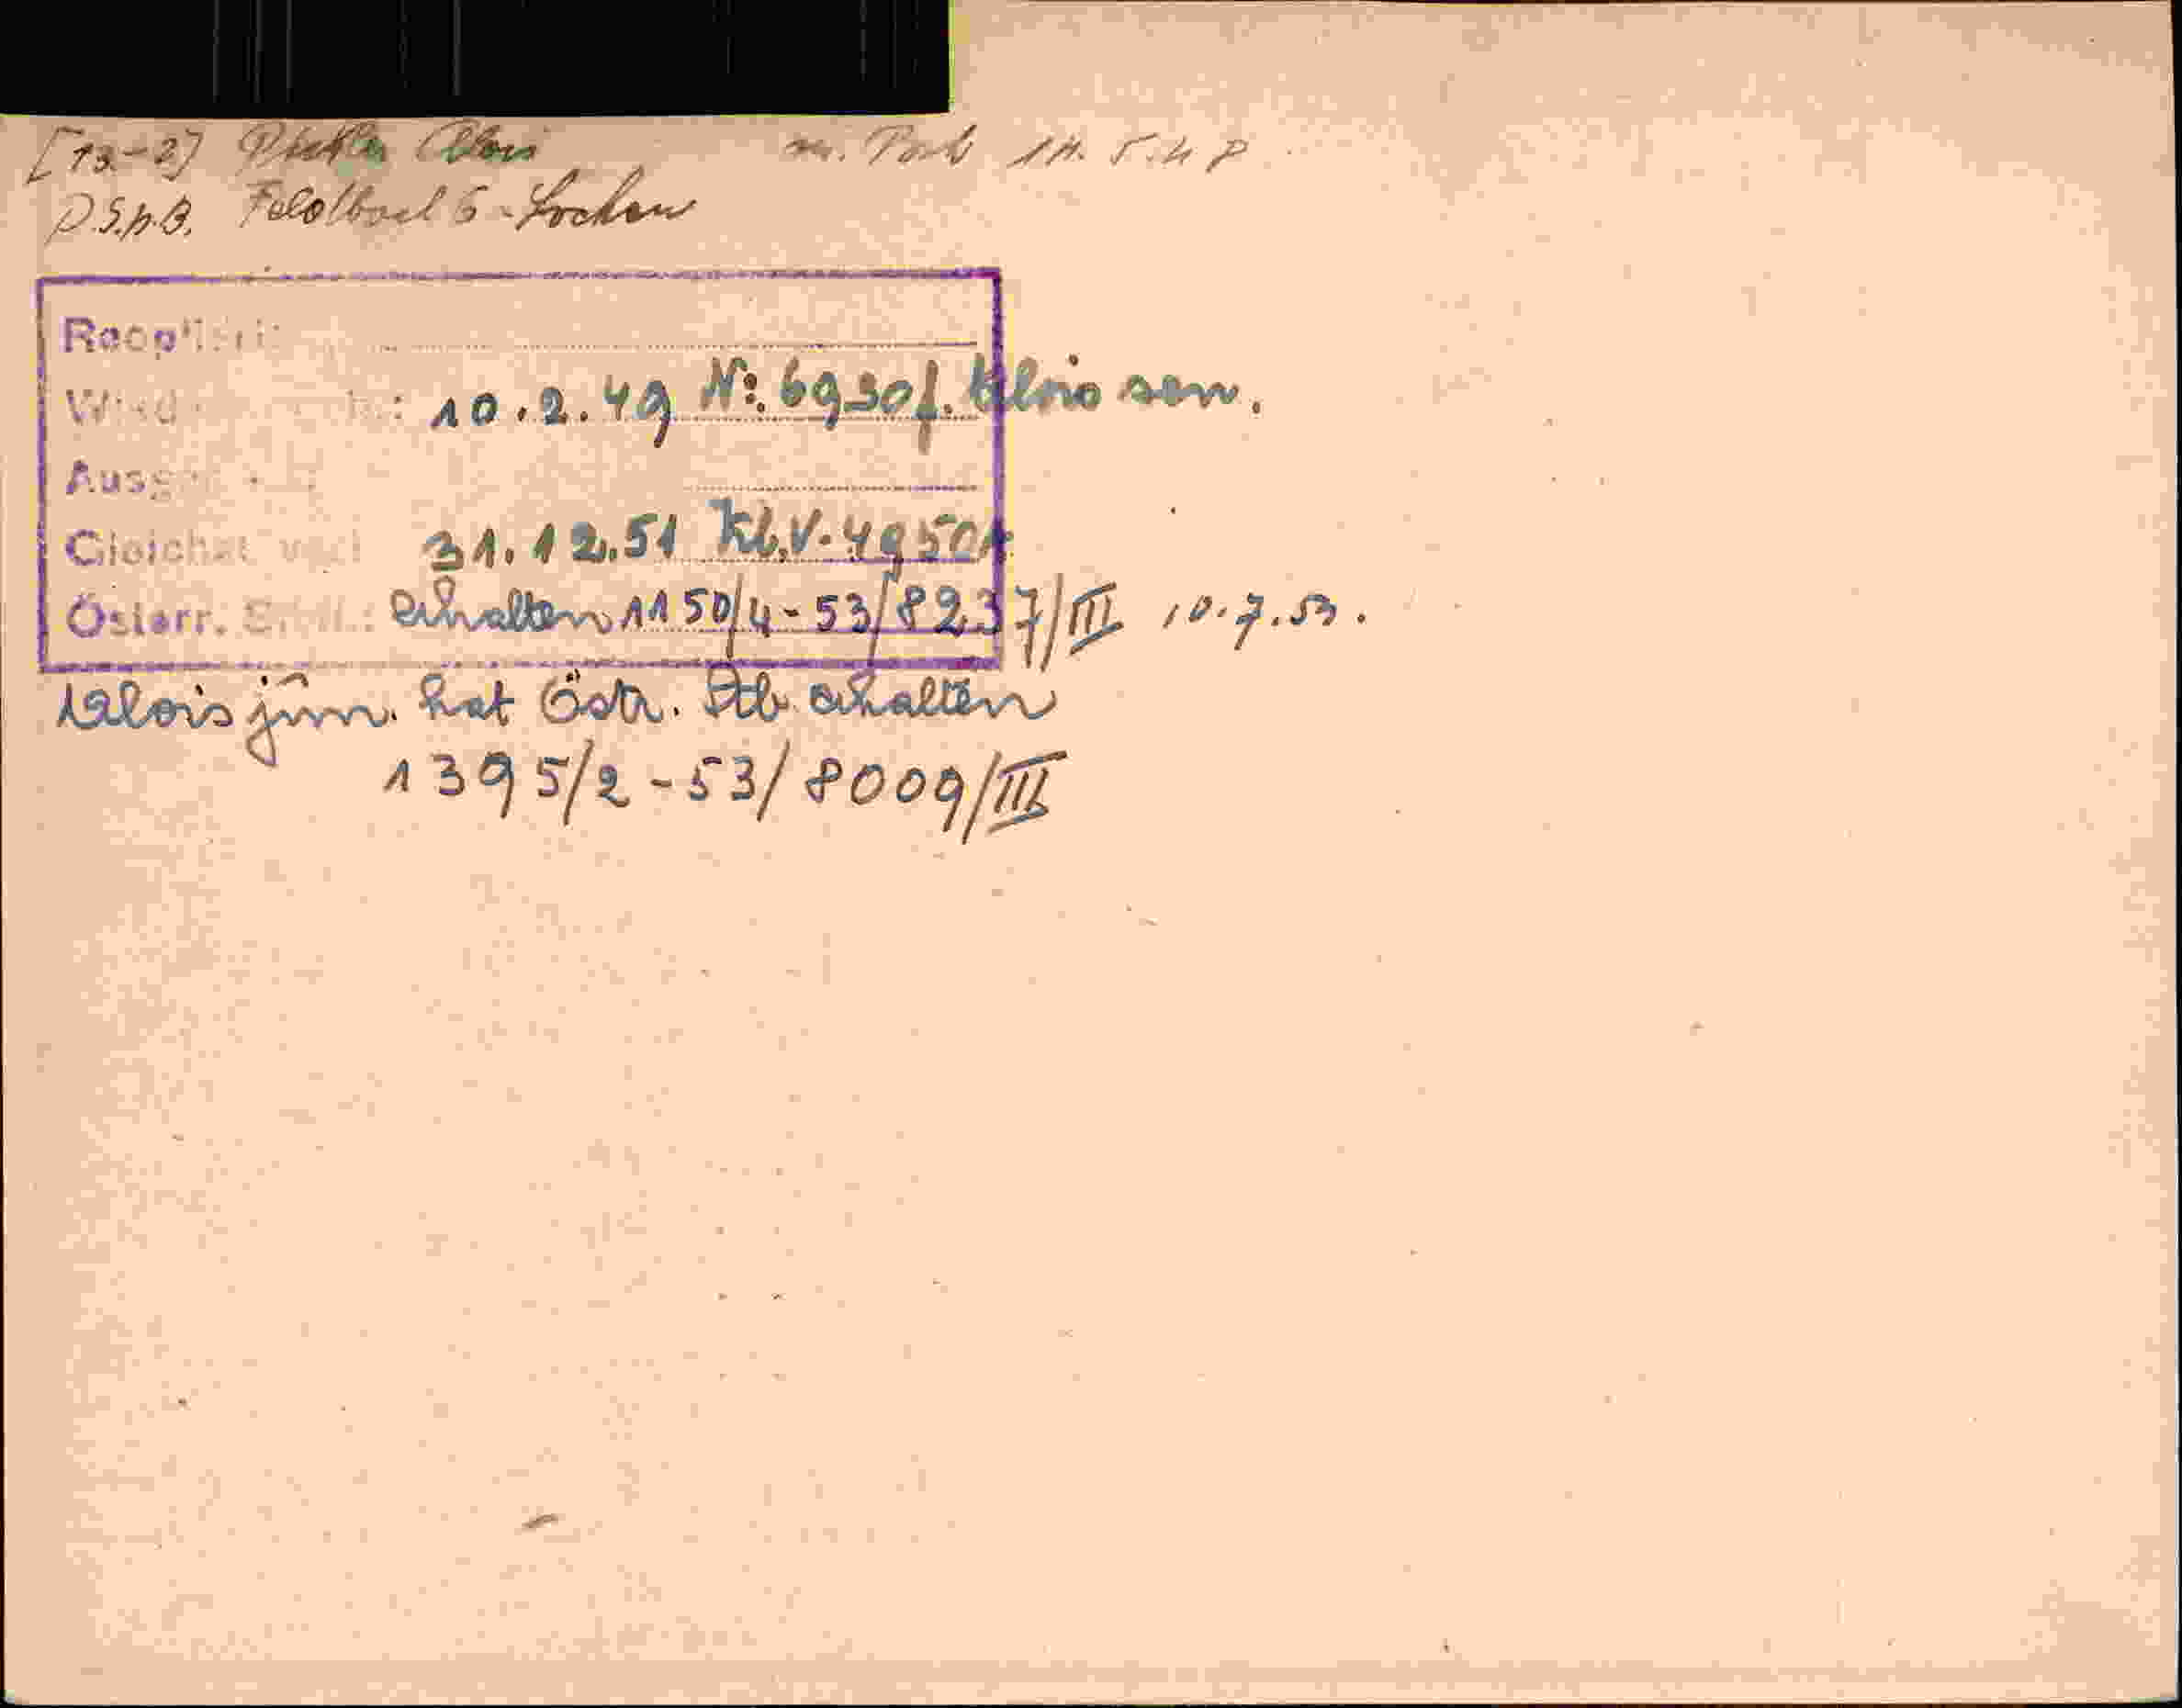 [13-2] Alois m. Post 14.5.48
D.S.p.B. Feldbach 6 - Lochen
10.2.49 No. 6930 f. Alois sen.
31.12.51 Kl.V. 4950
Österr. erhalten 1150/4-53/8237/III 10.7.53.
Alois jun. hat Östr. Stb. erhalten
1395/2-53/8009/III